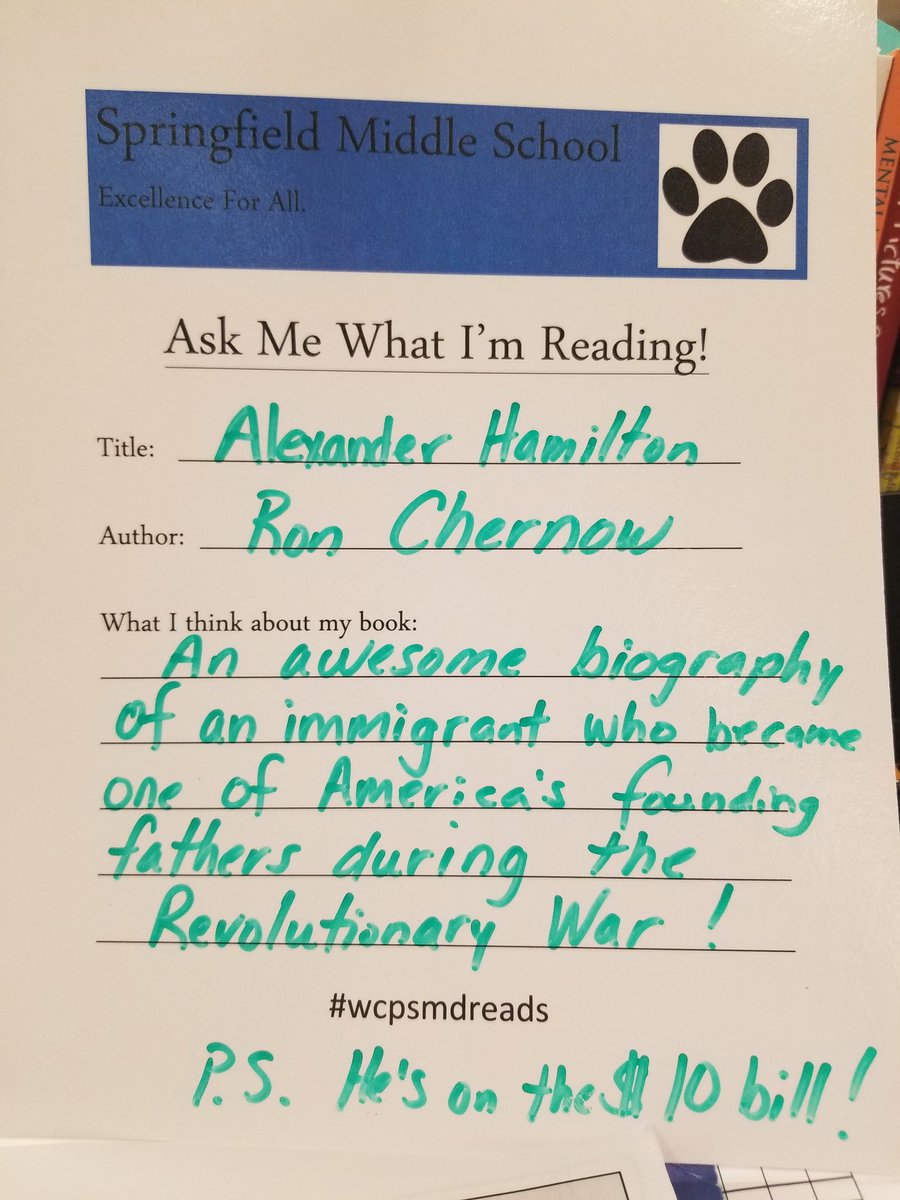 Springfield Middle School
Excellence For All.
Ask Me What I'm Reading!
Title: Alexander Hamilton
Author: Ron Chernow
What I think about my book:
An awesome biography
of an immigrant who became
one of America's founding
fathers during the
Revolutionary War!
#wcpsmdreads
P.S. He's on the $10 bill!
MENTAL